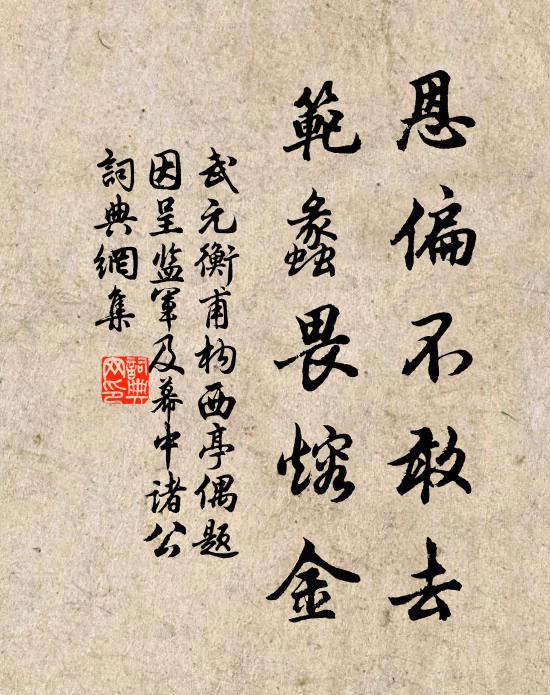 恩偏不敢去
範蠡畏熔金
武元衡甫构西亭偶题
因呈监軍及幕中诸公
詞典網集
詞典
网印